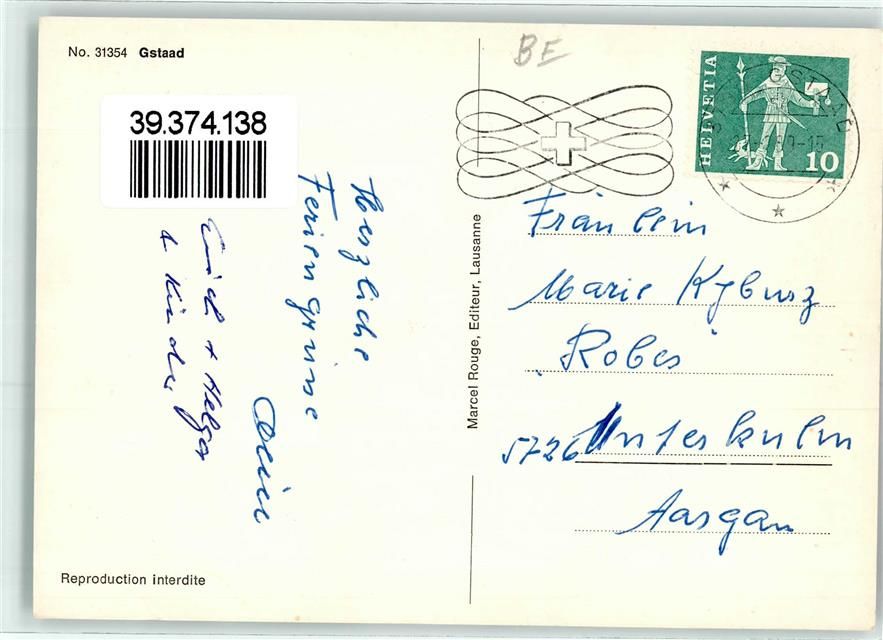 No. 31354 Gstaad
BE
39.374.138
HELVETIA
10
Herzliche
Feriengrüsse
Erich + Helga
+ Kinder
Marcel Rouge, Editeur, Lausanne
Fräulein
Marie Kyburz
"Robes"
5726 Unterkulm
Aargau
Reproduction interdite